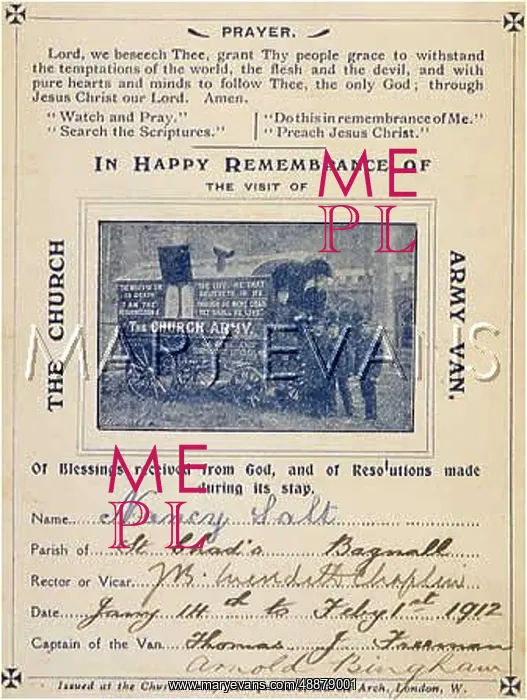 PRAYER.
Lord, we beseech Thee, grant Thy people grace to withstand
the temptations of the world, the flesh and the devil, and with
pure hearts and minds to follow Thee, the only God; through
Jesus Christ our Lord. Amen.
"Watch and Pray."
"Search the Scriptures."
"Do this in remembrance of Me."
"Preach Jesus Christ."
IN HAPPY REMEMBRANCE OF
THE VISIT OF
ME
PL
THE CHURCH
THE CHURCH ARMY.
ARMY VAN.
MARY EVANS
Of Blessings received from God, and of Resolutions made
during its stay.
ME
PL
Name Nancy Salt
Parish of St Chad's Bagnall
Rector or Vicar J B. Meredith Chaplin
Date Jany 14th to Feby 1st 1912
Captain of the Van Thomas J Freeman
Arnold Bingham
Issued at the Church Arch, London, W.
www.maryevans.com/48879001